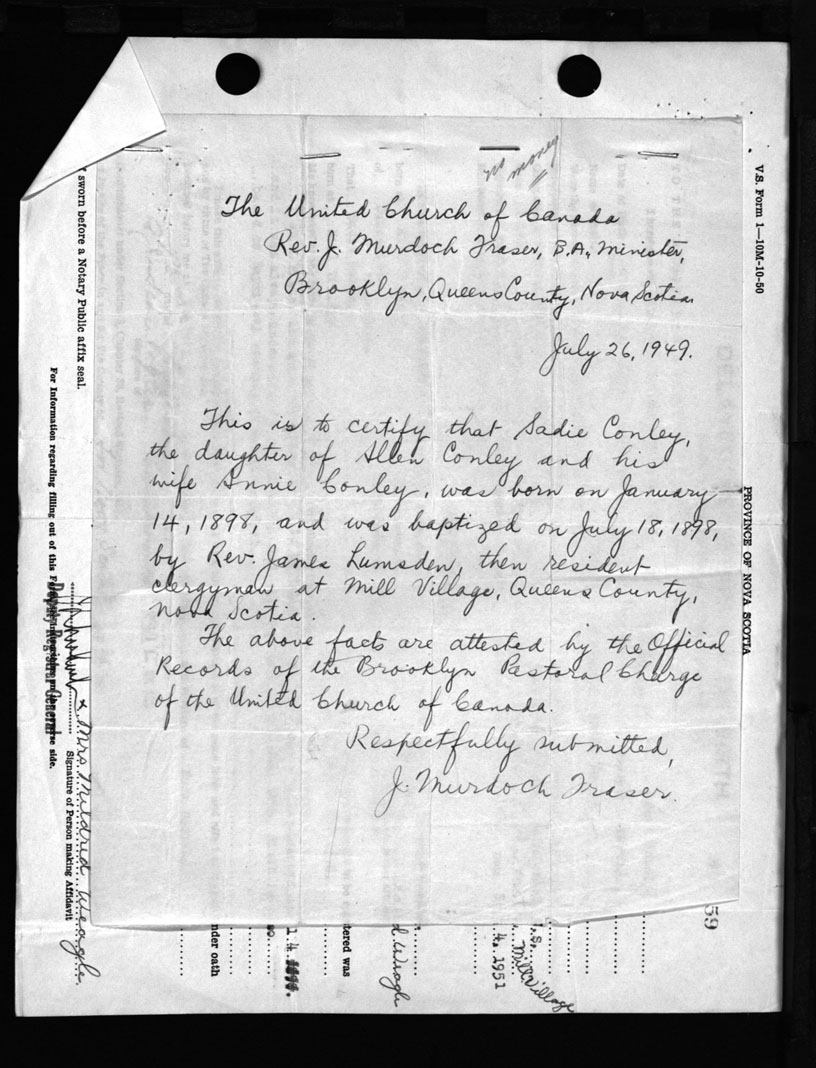 no money
The United Church of Canada
Rev. J. Murdoch Fraser, B.A., Minister,
Brooklyn, Queens County, Nova Scotia.
July 26, 1949.
This is to certify that Sadie Conley,
the daughter of Allen Conley and his
wife Annie Conley, was born on January
14, 1898, and was baptized on July 18, 1898,
by Rev. James Lumsden, then resident
clergyman at Mill Village, Queens County,
Nova Scotia.
The above facts are attested by the Official
Records of the Brooklyn Pastoral Charge
of the United Church of Canada.
Respectfully submitted,
J. Murdoch Fraser.
V.S. Form 1—10M-10-50
PROVINCE OF NOVA SCOTIA
59
sworn before a Notary Public affix seal.
For Information regarding filling out of this
se side.
Deputy Registrar General
x Mrs. Mildred Weagle
Signature of Person making Affidavit
nder oath
14
tered was
4. 1951
Mill Village